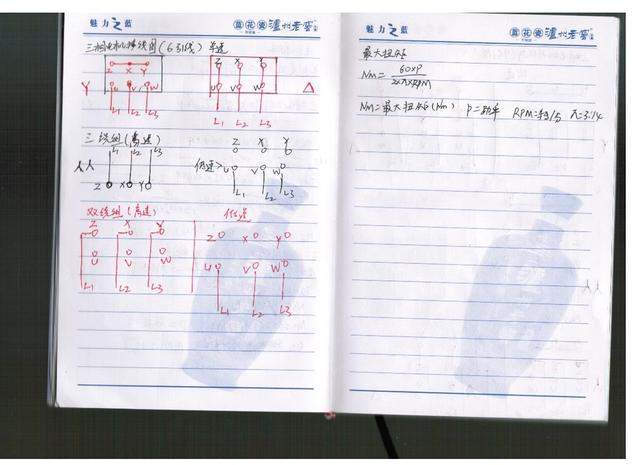 魅力之蓝
蓝花瓷 泸州老窖
三相电机接线图(6引线)单速
Z X Y
Y U V W
L1 L2 L3
Z X Y
U V W △
L1 L2 L3
三线组(高速)
L1 L2 L3
人人
Z X Y
Z X Y
低速> U V W
L1 L2 L3
双线组(高速)
Z X Y
U V W
L1 L2 L3
低速
Z X Y
U V W
L1 L2 L3
魅力之蓝
蓝花瓷 泸州老窖
最大扭矩
Nm= 60×P
2×π×RPM
Nm=最大扭矩(Nm) P=功率 RPM=转/分 π=3.14
人人